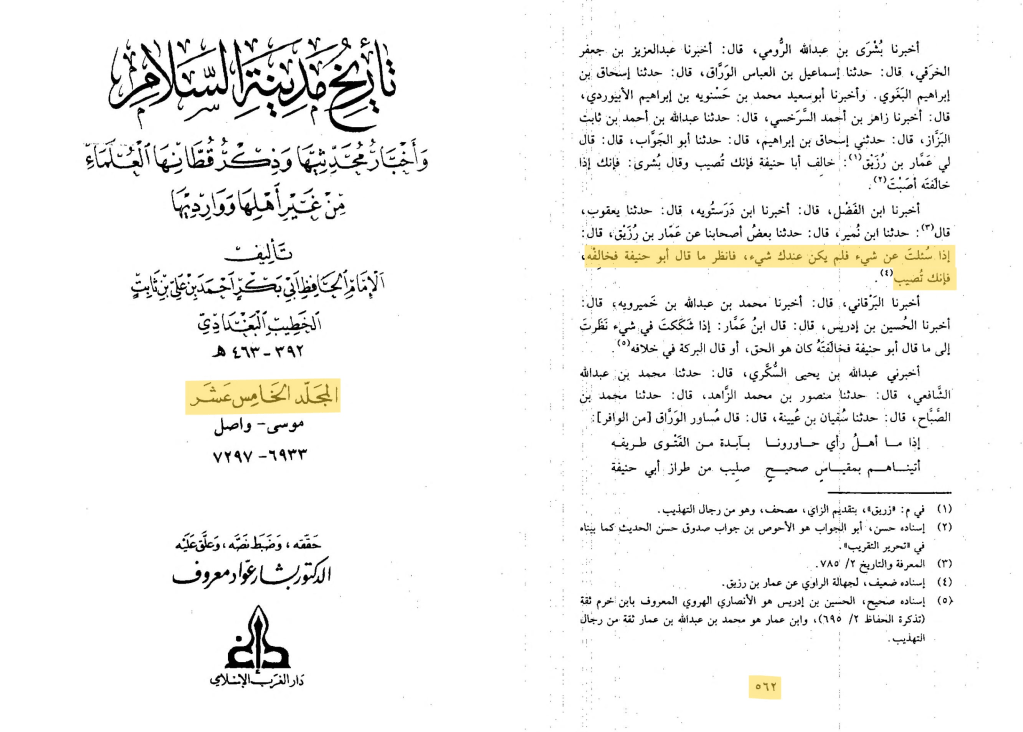 تأريخ مدينة السلام
وأخبار محدثيها وذكر قطانها العلماء
من غير أهلها ووارديها
تأليف
الإمام الحافظ أبي بكر أحمد بن علي بن ثابت
الخطيب البغدادي
٣٩٢ - ٤٦٣ هـ
المجلد الخامس عشر
موسى - واصل
٦٩٣٣ - ٧٢٩٧
حققه، وضبط نصه، وعلق عليه
الدكتور بشار عواد معروف
دار الغرب الإسلامي
أخبرنا بُشْرَى بن عبدالله الرُّومي، قال: أخبرنا عبدالعزيز بن جعفر
الخِرَقي، قال: حدثنا إسماعيل بن العباس الوَرَّاق، قال: حدثنا إسحاق بن
إبراهيم البَغَوي. وأخبرنا أبوسعيد محمد بن حَسْنويه بن إبراهيم الأبيوردي،
قال: أخبرنا زاهر بن أحمد السَّرَخسي، قال: حدثنا عبدالله بن أحمد بن ثابت
البَزَّاز، قال: حدثني إسحاق بن إبراهيم، قال: حدثنا أبو الجَوَّاب، قال: قال
لي عَمَّار بن رُزَيْق(١): خالِف أبا حنيفة فإنك تُصيب وقال بُشرى: فإنك إذا
خالَفتَه أصَبْتَ(٢).
أخبرنا ابن الفَضْل، قال: أخبرنا ابن دَرَستُويه، قال: حدثنا يعقوب،
قال(٣): حدثنا ابن نُمير، قال: حدثنا بعضُ أصحابنا عن عَمَّار بن رُزَيق، قال:
إذا سُئلتَ عن شيء فلم يكن عندك شيء، فانظر ما قال أبو حنيفة فخالِفْه،
فإنك تُصيب(٤).
أخبرنا البَرْقاني، قال: أخبرنا محمد بن عبدالله بن خَميرويه، قال:
أخبرنا الحُسين بن إدريس، قال: قال ابنُ عَمَّار: إذا شَكَكتَ في شيء نَظَرتَ
إلى ما قال أبو حنيفة فخالَفْتَهُ كان هو الحق، أو قال البركة في خلافه(٥).
أخبرني عبدالله بن يحيى السُّكَّري، قال: حدثنا محمد بن عبدالله
الشَّافعي، قال: حدثنا منصور بن محمد الزَّاهد، قال: حدثنا محمد بن
الصَّبَّاح، قال: حدثنا سُفيان بن عُيينة، قال: قال مُساور الوَرَّاق [من الوافر]:
إذا ما أهلُ رأي حاورونا بآبدة من الفَتْوى طريفه
أتيناهم بمقياسٍ صحيحٍ صليب من طراز أبي حنيفة
(١) في م: «زريق»، بتقديم الزاي، مصحف، وهو من رجال التهذيب.
(٢) إسناده حسن، أبو الجواب هو الأحوص بن جواب صدوق حسن الحديث كما بيناه
في «تحرير التقريب».
(٣) المعرفة والتاريخ ٢/ ٧٨٥.
(٤) إسناده ضعيف، لجهالة الراوي عن عمار بن رزيق.
(٥) إسناده صحيح، الحسين بن إدريس هو الأنصاري الهروي المعروف بابن خرم ثقة
(تذكرة الحفاظ ٢/ ٦٩٥)، وابن عمار هو محمد بن عبدالله بن عمار ثقة من رجال
التهذيب.
٥٦٢